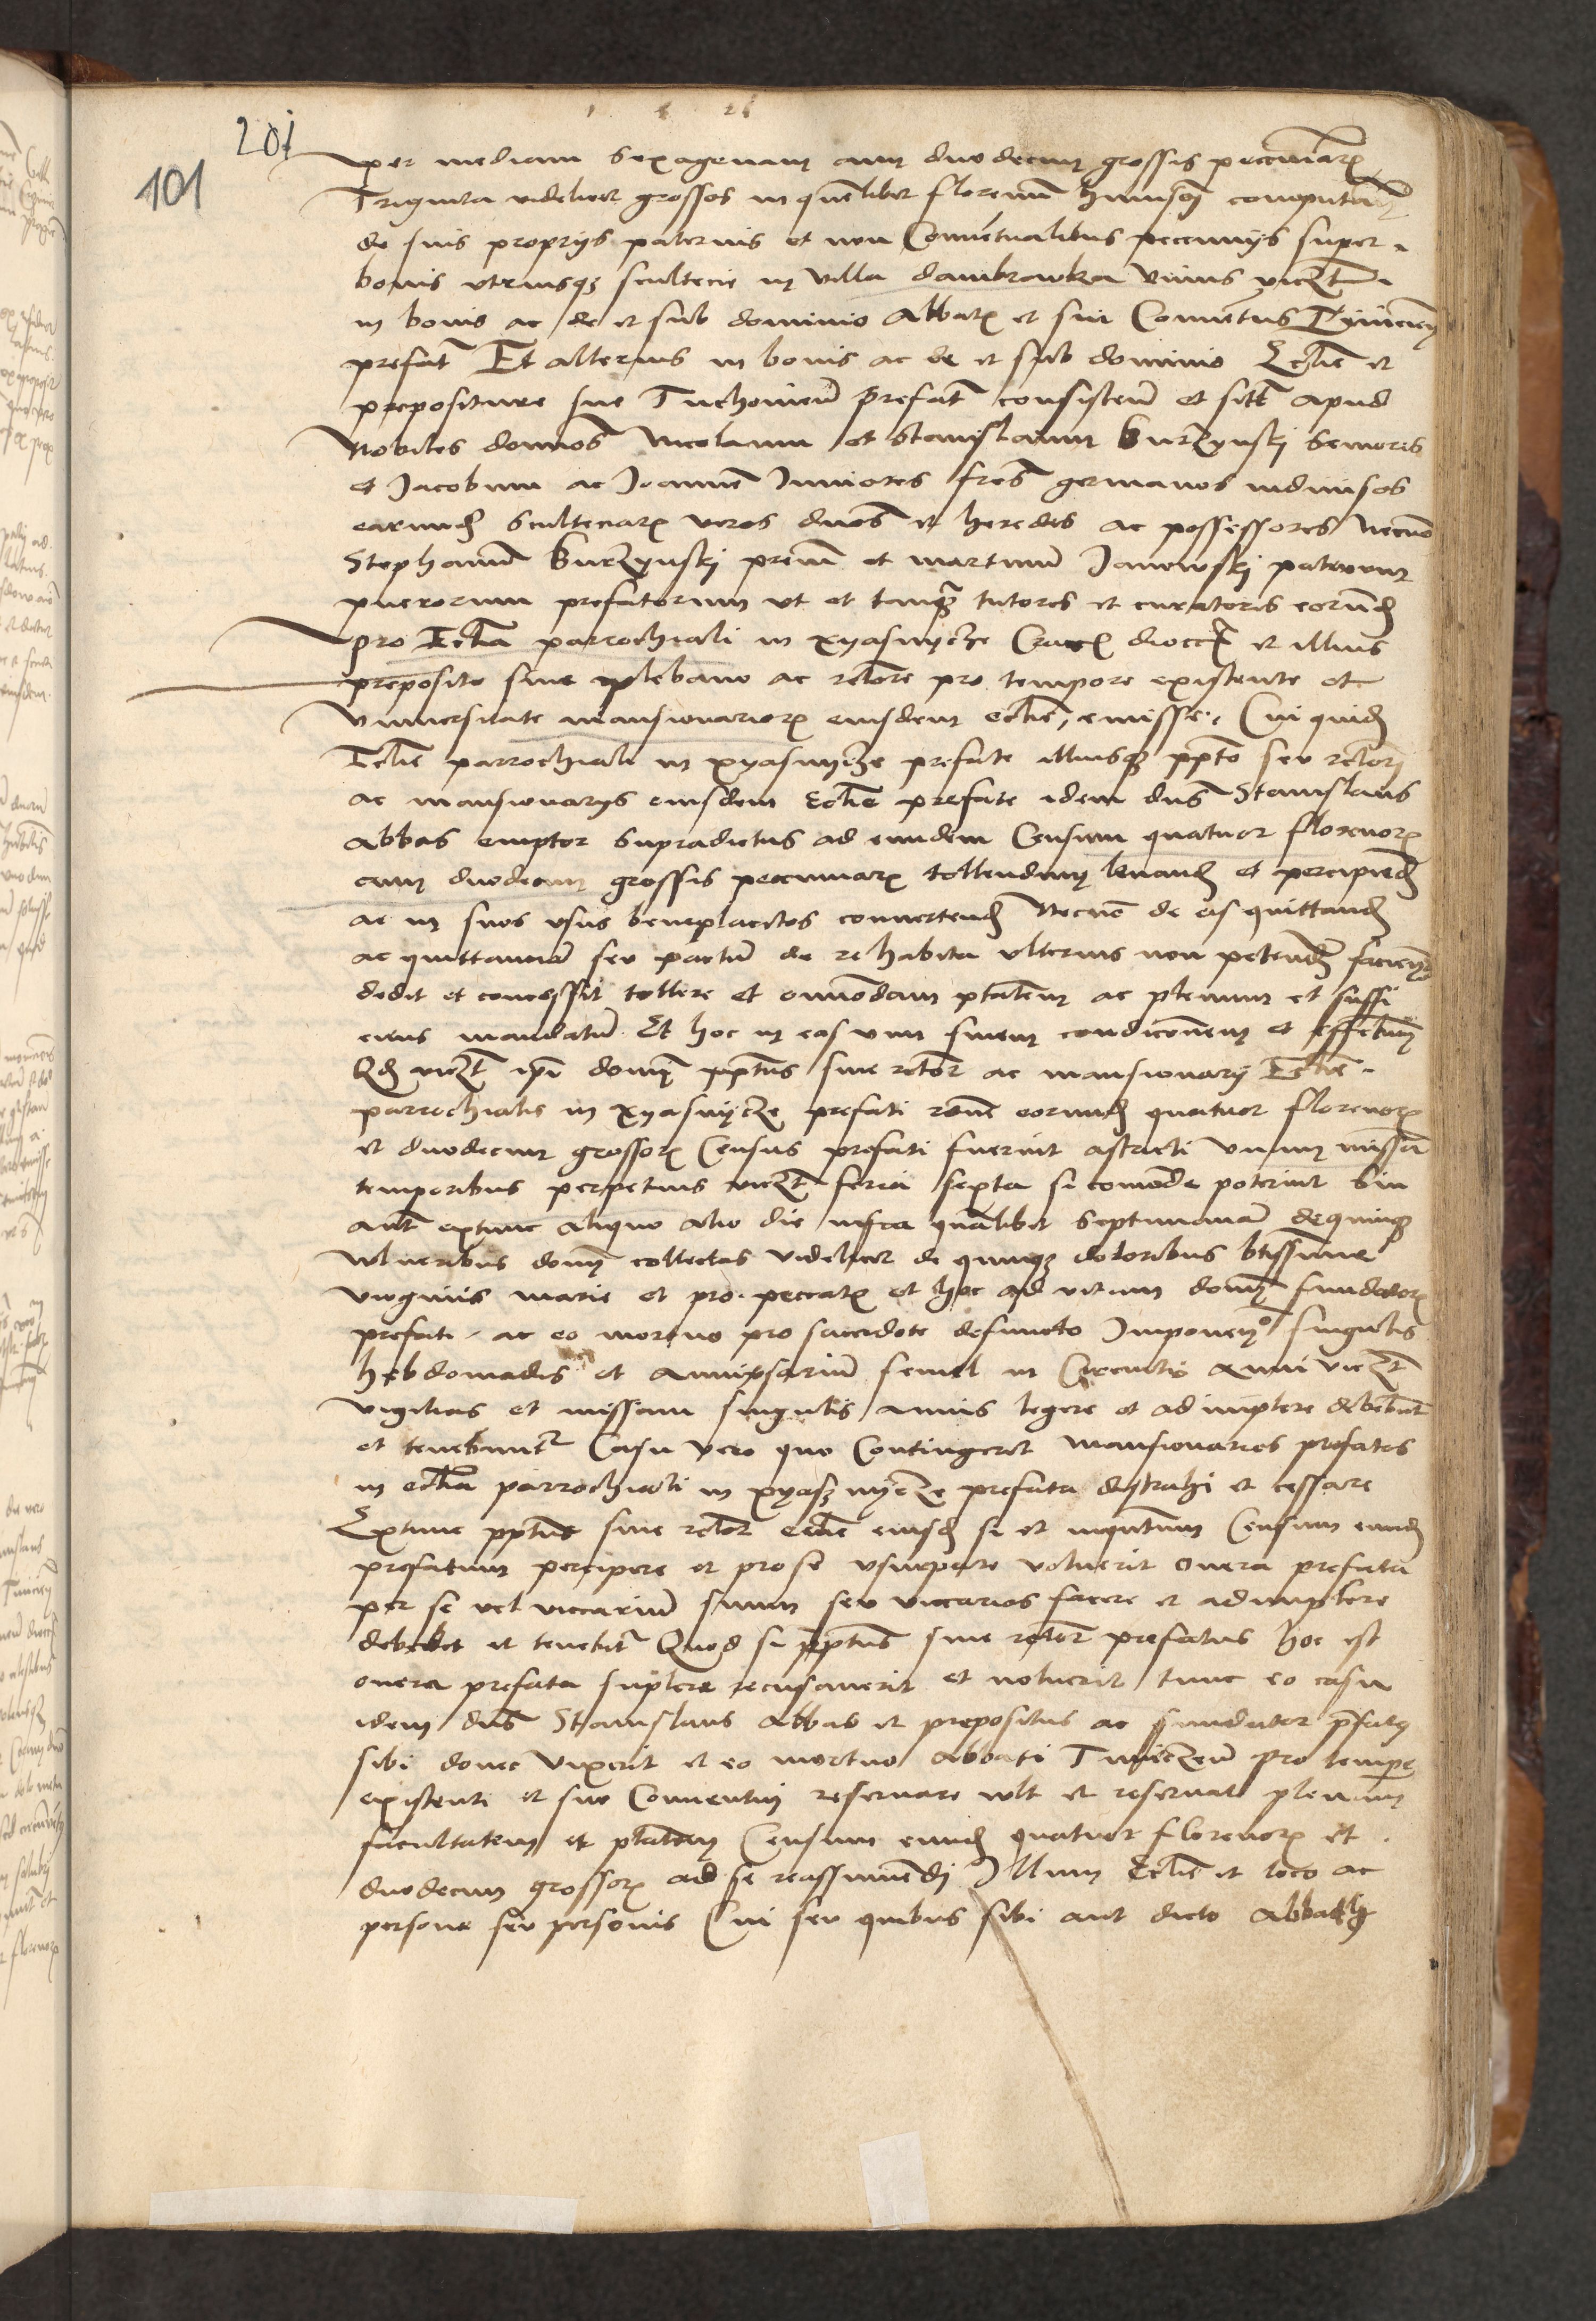 201
101
per mediam sexagenam cum duodecim grossis pecuniarꝝ
Triginta videlicet grossos in quēlibet florenū huiusmōi computañ
de suis proprijs paternis et non Conuētualibus pecunijs super
bonis vtriusqꝫ scultecie in villa dambrowka vnius viczt
in bonis ac de et sub dominio Abbatꝭ et sui Conuētus Tyniecieñ
prefat̄ Et alterius in bonis ac de et sub dominio Eccl̄ie et
prepositure sue Tuchouieñ prefat̄ consisteñ et sitt̄ apud
Nobiles domiōs Nicolaum et Stanislaum Burzynskj seniores
et Jacobum ac Joannē Juniores fr̄es germanos indiuisos
earumd̄ scultetiarꝝ veros dn̄os et heredes ac possessores Necnō
Stephanū Burzynskj prem̄ et martinū Janowskj patruum
puerorum prefatorum vt et tanqꝫ tutores et curatores eorūd̄
pro Eccl̄ia parrochiali in Xyasnycze Cracꝭ dioc̄ et illius
preposito siue plebano ac rc̄tore pro tempore existente et
vniuersitate mansionariorꝝ eiusdem eccl̄ie, emisse. Cui quid̄
Eccl̄ie parrochiali in Xyasnycze prefate illiusqꝫ pp̄to seu rc̄torj
ac mansionarijs eiusdem Eccl̄ie prefate idem dn̄s Stanislaus
Abbas emptor supradictus ad eundem Censum quatuor florenorꝝ
cum duodecim grossis pecuniarꝝ tollendum leuand̄ et percipiend̄
ac in suos vsus beneplacitos conuertend̄ Necnō de eis quittand̄
ac quittanciā seu pactū de re habita vlterius non petend̄ faciend̄
dedit et concessit tollere et omnōdam ptātem ac plenum et suffi
ciens mandatū Et hoc in eas vim siuem condicōnem et effectum
Qd̄ viczt ip̄i domĩ pp̄tus siue rc̄tor ac mansionarij Eccl̄ie
parrochialis in Xyasnycze prefati rōne eorumd̄ quatuor florenorꝝ
et duodecim grossorꝝ Census prefati fuerint astricti vnam missā
temporibus perpetuis viczt feria sexta si comōde poterint sin
aut̄ extunc aliquo alio die infra quālibet septimanā de quinqꝫ
vulneribus domĩ collectas videlicet de quinqꝫ doloribus bt̄issime
virginis marie et pro peccatꝭ et hoc ad vitam domĩ fundatorꝭ
prefati ac eo mortuo pro sacerdote defuncto singulis
hebdomadis et anniu̅sariū semel in Circuitu anni viczt
vigilias et missam singulis annis legere et adimplere debebūt
et tenebunt̄ Casu vero quo Contingeret mansionarios prefatos
in eccl̄ia parrochiali in Xyasznycze prefata distrahi et cessare
Extunc pp̄tus siue rc̄tor eccl̄ie eiusd̄ si et inqn̄tum Censum eund̄
prefatum percipere et pro se vsurpare voluerit onera prefata
per se vel viccariū suum seu viccarios facere et adimplere
debebit et tenebit̄ Quod si pp̄tus siue rc̄tor prefatus hoc est
onera prefata suplere recusauerit et noluerit tunc eo casu
idem dn̄s Stanislaus Abbas et prepositus ac fundator p̄fatꝰ
sibi donec vixerit et eo mortuo Abbati Tyniczeñ pro tempe
existenti et suo Conuentuj reseruare vult et reseruat plenam
facultatem et ptātem Censum eund̄ quatuor florenorꝝ et
duodecim grossorꝝ ad se reassumēdj Illum Eccl̄ie et loco ac
persone seu personis Cui seu quibus sibi aut dicto Abbatj